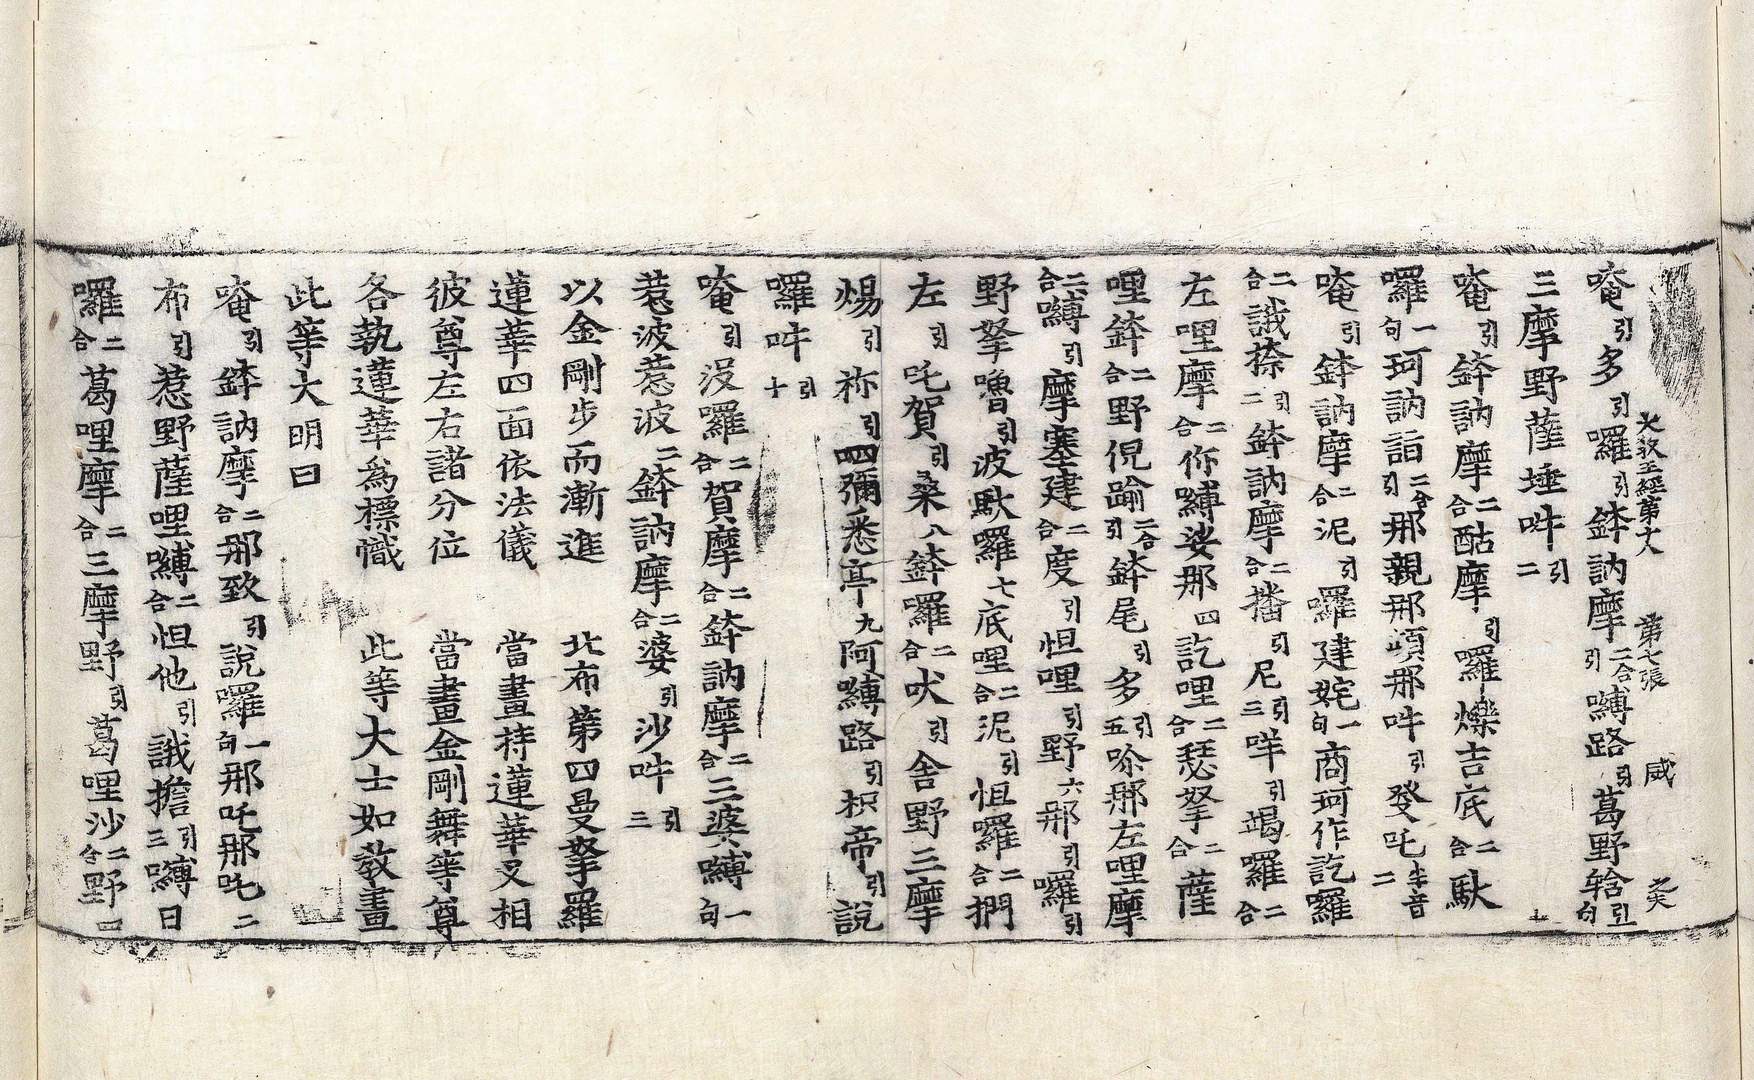 大教王經第十八 第七張 威 之天
唵引多引囉引鉢訥摩二合引嚩路引葛野輅引句
三摩野薩埵吽引二
唵引鉢訥摩二合酤摩引囉爍吉底二合馱
囉一句珂訥誐二合引那親那頻那吽引癹吒半音二
唵引鉢訥摩二合泥引囉建姹一句商珂作訖囉
二合誐捺引二鉢訥摩二合播引尼引三咩引竭囉二合
左哩摩二合你嚩娑那四訖哩二合瑟拏二合薩
哩鉢二合野倪踰二合引鉢尾引多引五唹那左哩摩
二合嚩引摩塞建二合度引怛哩引野六那引囉引
野拏嚕引波馱囉七底哩二合泥引怛囉二合捫
左引吒賀引桑八鉢囉二合吠引舍野三摩
煬引祢引四彌悉亭九阿嚩路引枳帝引說
囉吽引十
唵引沒囉二合賀摩二合鉢訥摩二合三婆嚩一句
惹波惹波二鉢訥摩二合婆引沙吽引三
以金剛步而漸進 北布第四曼拏羅
蓮華四面依法儀 當畫持蓮華叉相
彼尊左右諸分位 當畫金剛舞等尊
各執蓮華爲標幟 此等大士如教畫
此等大明曰
唵引鉢訥摩二合那致引說囉一句那吒那吒二
布引惹野薩哩嚩二合怛他引誐擔引三嚩日
囉二合葛哩摩二合三摩野引葛哩沙二合野四